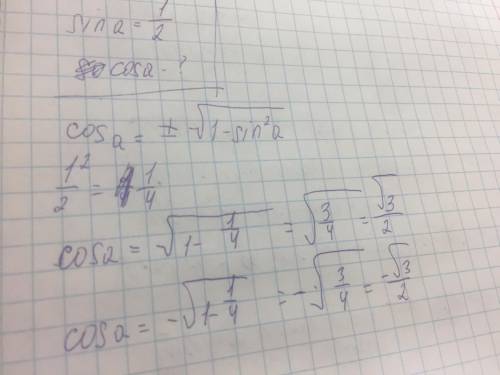 sin a = 1/2
cosa - ?
cos a = ± √1-sin²a
1²/2 = 1/4
cosa = √1- 1/4 = √3/4 = √3/2
cosa = -√1- 1/4 = -√3/4 = -√3/2